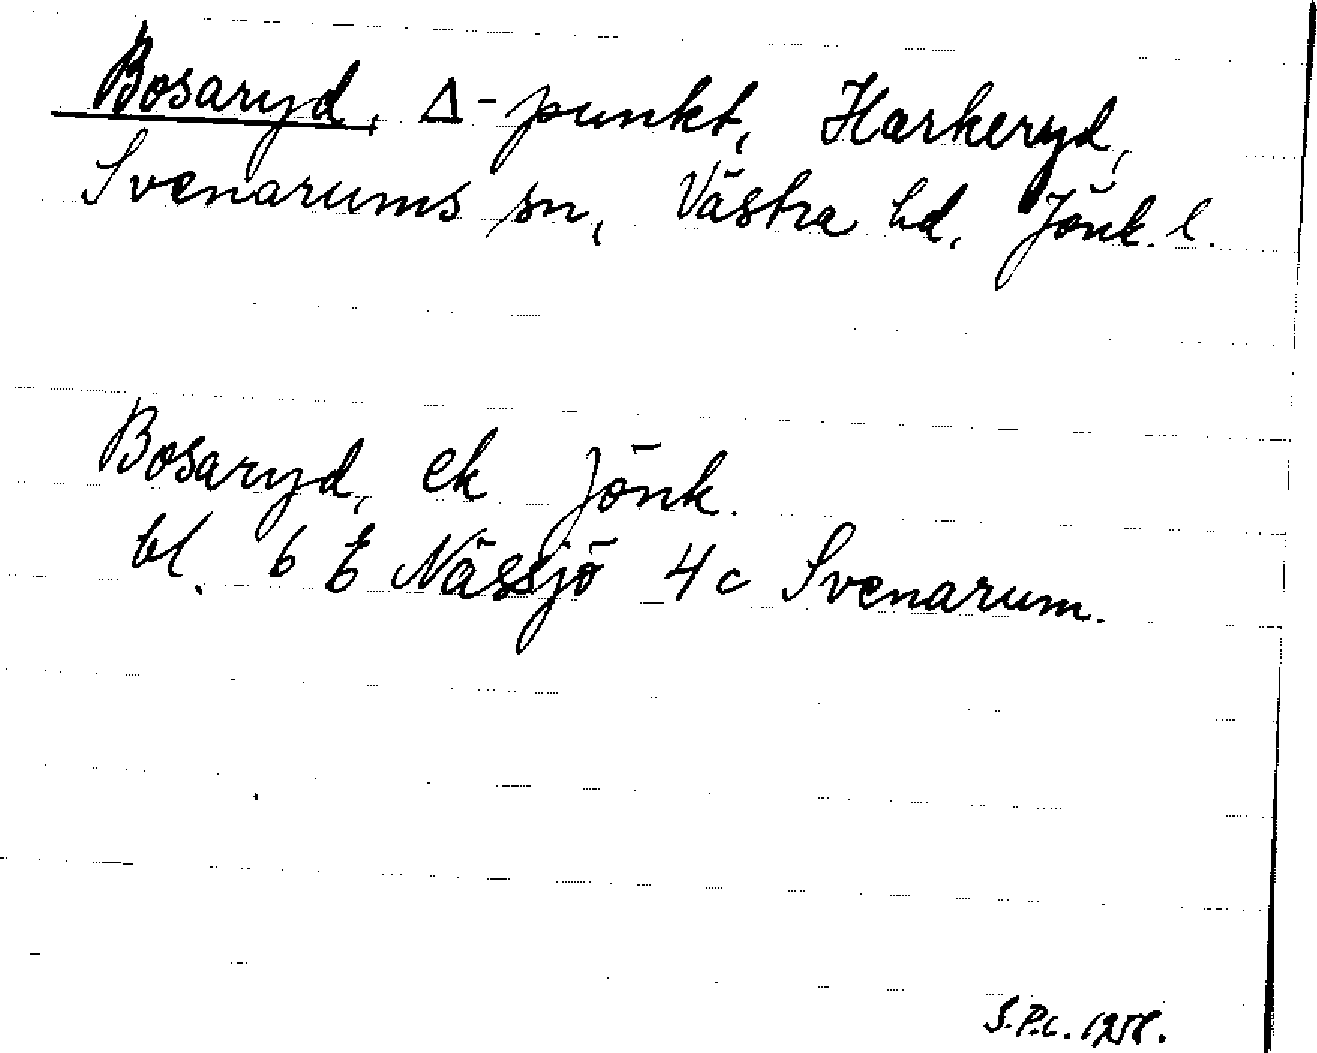 Bosaryd, Δ-punkt, Harkeryd,
Svenarums sn, Västra hd, Jönk. l.
Bosaryd, ek Jönk.
bl. 6 E Nässjö 4 c Svenarum.